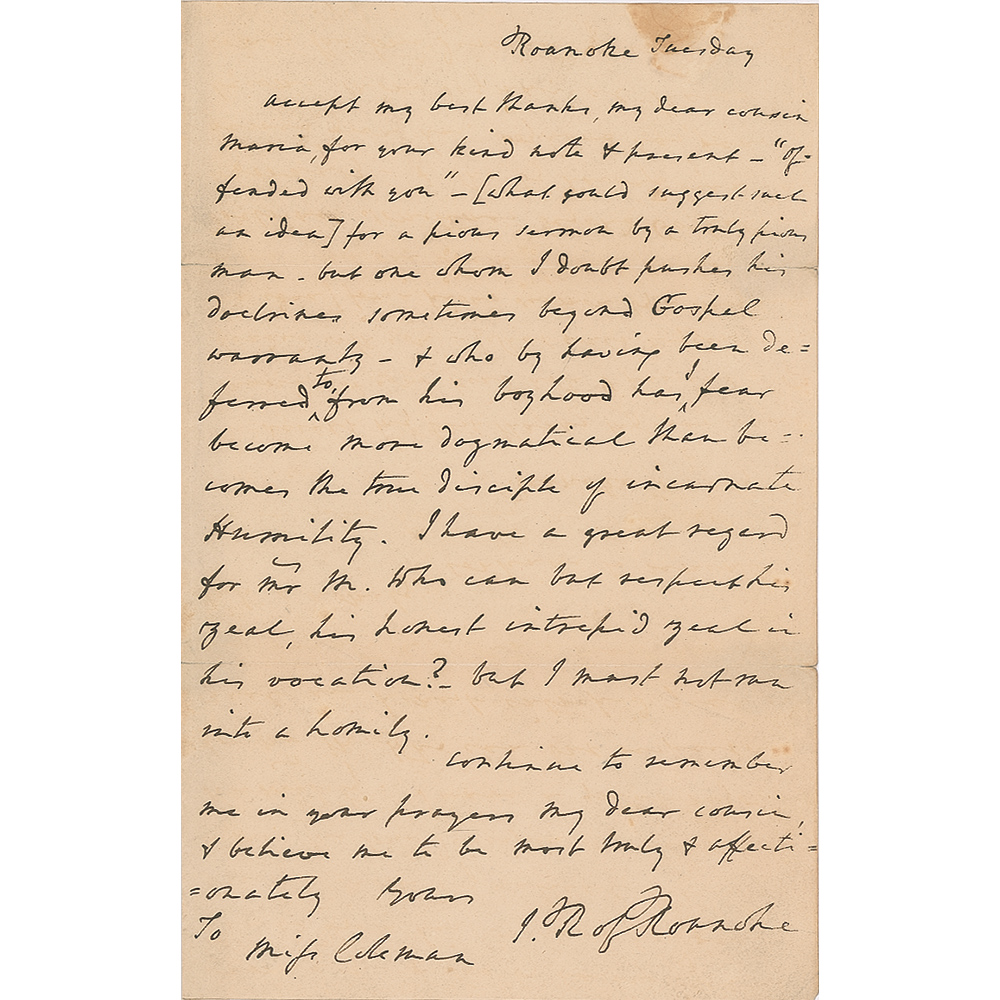 Roanoke Tuesday
accept my best thanks, my dear cousin
Maria, for your kind note & present – "of-
fended with you" – [what could suggest such
an idea] for a pious sermon by a truly pious
man – but one whom I doubt pushes his
doctrines sometimes beyond Gospel
warranty – & who by having been de=
ferred to, from his boyhood has, I fear
become more dogmatical than be=
comes the true disciple of incarnate
Humility. I have a great regard
for Mr M. Who can but respect his
zeal, his honest intrepid zeal in
his vocation? – but I must not run
into a homily.
continue to remember
me in your prayers my dear cousin,
& believe me to be most truly & affecti=
=onately yours
J. R of Roanoke
To
Miss Coleman